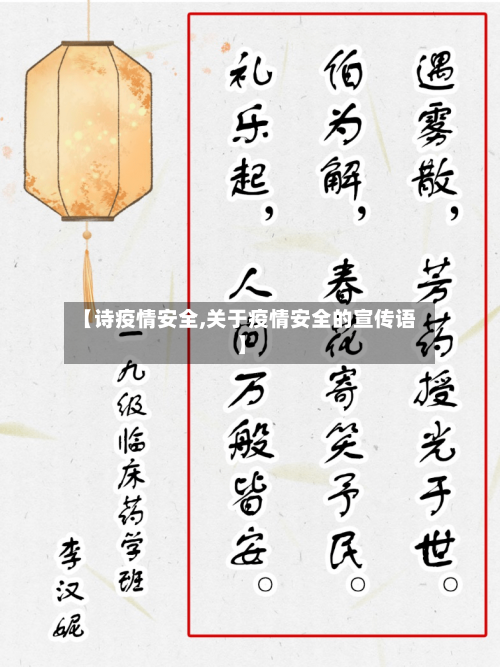 遇雾散，芳药授光于世。
伯为解，春花寄笑予民。
礼乐起，人间万般皆安。
【诗疫情安全,关于疫情安全的宣传语
】
一九级临床药学班
李汉妮